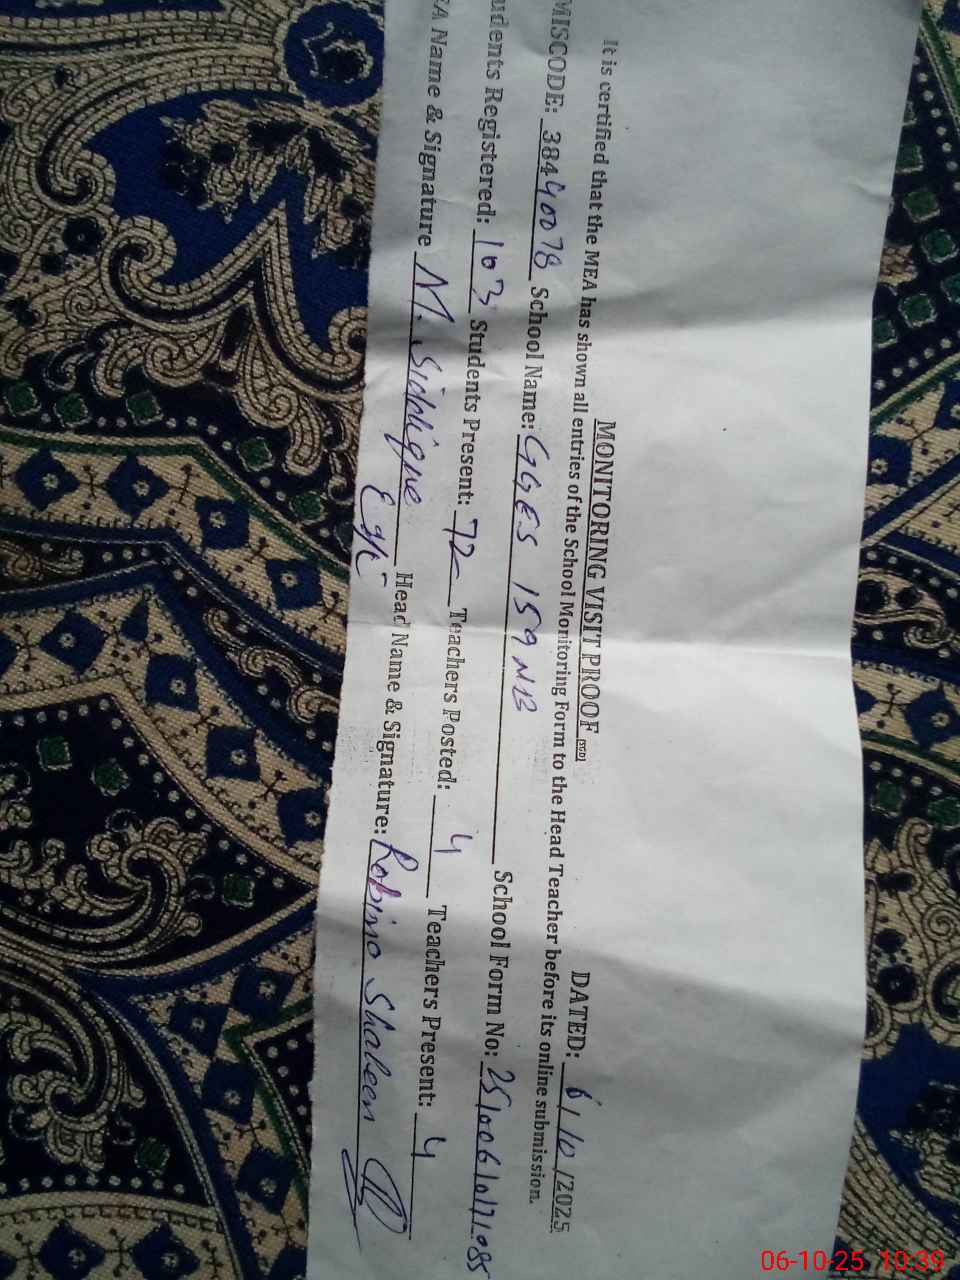 MONITORING VISIT PROOF [SGD] DATED: 6/10/2025
It is certified that the MEA has shown all entries of the School Monitoring Form to the Head Teacher before its online submission.
MISCODE: 38440078 School Name: GGES 159 NB School Form No:
udents Registered: 103 Students Present: 72 Teachers Posted: 4 Teachers Present: 4
EA Name & Signature M. Siddique Head Name & Signature: Robina Shaheen
06-10-25 10:39